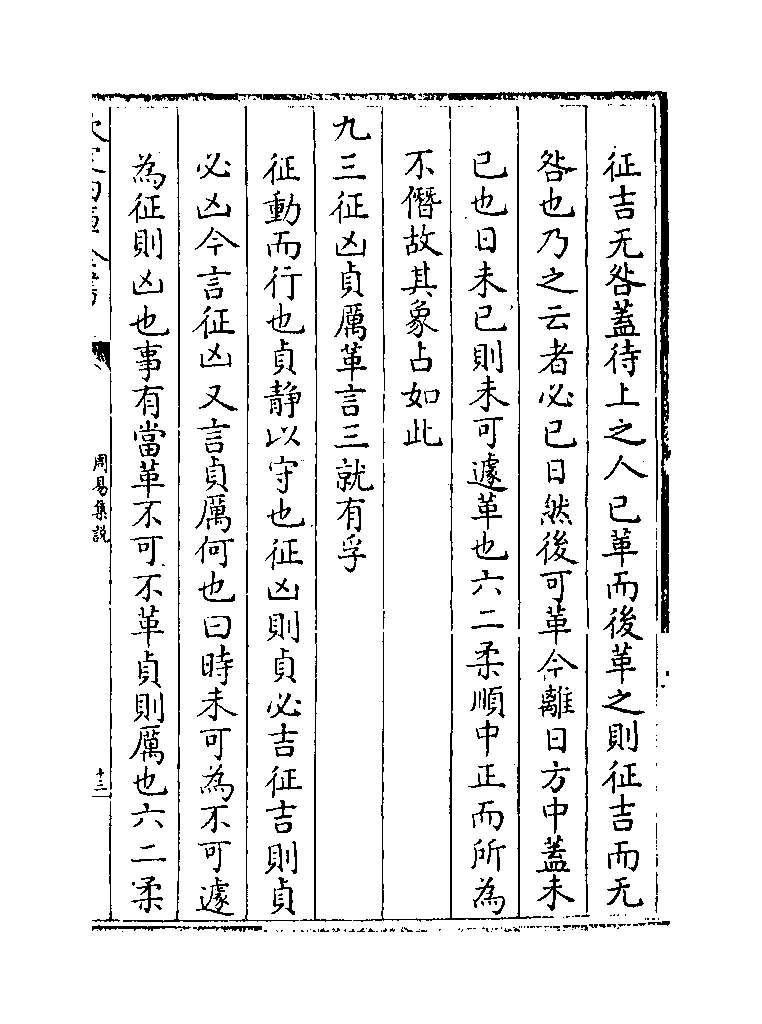 征吉无咎蓋待上之人已革而後革之則征吉而无
咎也乃之云者必已日然後可革今離日方中蓋未
已也日未已則未可遽革也六二柔順中正而所為
不僭故其象占如此
九三征凶貞厲革言三就有孚
征動而行也貞静以守也征凶則貞必吉征吉則貞
必凶今言征凶又言貞厲何也曰時未可為不可遽
為征則凶也事有當革不可不革貞則厲也六二柔
周易集説
十三